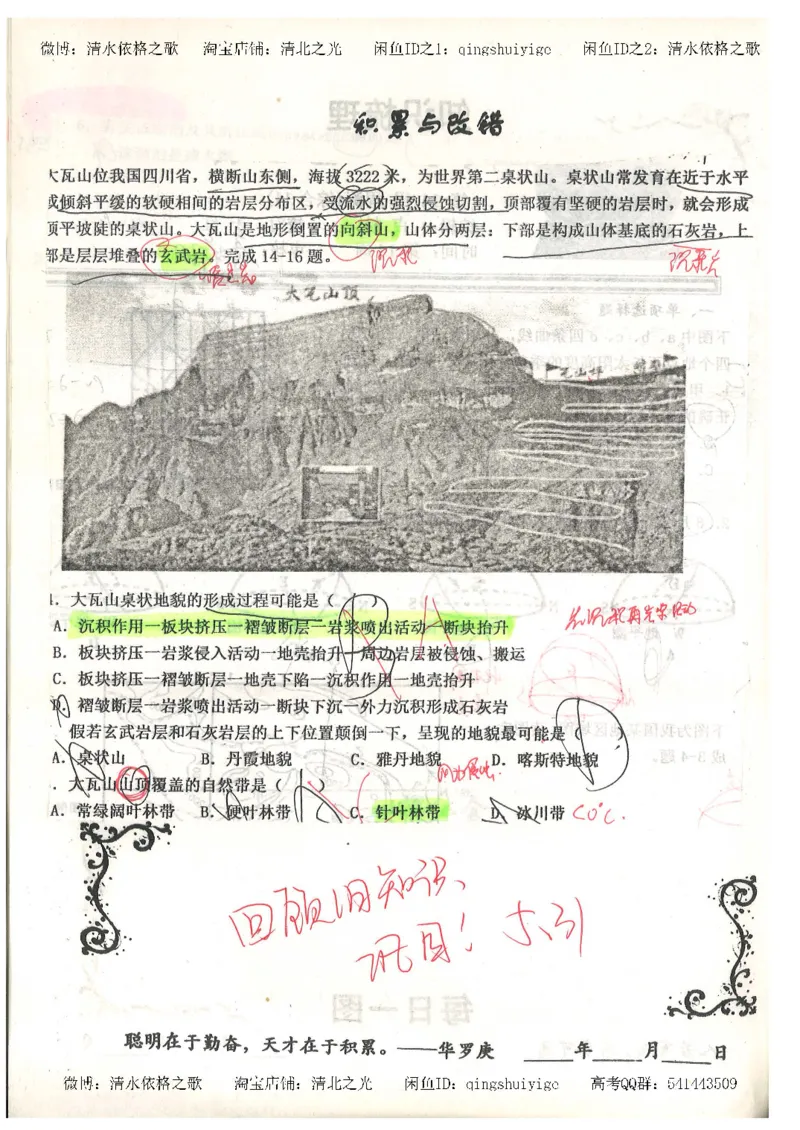 微博：清水依格之歌 淘宝店铺：清北之光 闲鱼ID之1：qingshuiyige 闲鱼ID之2：清水依格之歌
积累与改错
大瓦山位我国四川省，横断山东侧，海拔 3222 米，为世界第二桌状山。桌状山常发育在近于水平
或倾斜平缓的软硬相间的岩层分布区，受流水的强烈侵蚀切割，顶部覆有坚硬的岩层时，就会形成
顶平坡陡的桌状山。大瓦山是地形倒置的向斜山，山体分两层：下部是构成山体基底的石灰岩，上
部是层层堆叠的玄武岩。完成 14-16 题。
沉积
沉积岩
大瓦山顶
瓦山坪
．大瓦山桌状地貌的形成过程可能是（ ）
先沉积再岩浆活动
A．沉积作用—板块挤压—褶皱断层—岩浆喷出活动—断块抬升
B．板块挤压—岩浆侵入活动—地壳抬升—周边岩层被侵蚀、搬运
C．板块挤压—褶皱断层—地壳下陷—沉积作用—地壳抬升
D．褶皱断层—岩浆喷出活动—断块下沉—外力沉积形成石灰岩
假若玄武岩层和石灰岩层的上下位置颠倒一下，呈现的地貌最可能是（ ）
A．桌状山 B．丹霞地貌 C．雅丹地貌 D．喀斯特地貌
．大瓦山山顶覆盖的自然带是（ ）
A．常绿阔叶林带 B．硬叶林带 C．针叶林带 D．冰川带 <0℃.
回顾旧知识、
讯目！
聪明在于勤奋，天才在于积累。——华罗庚 ____年____月____日
微博：清水依格之歌 淘宝店铺：清北之光 闲鱼ID：qingshuiyige 高考QQ群：541443509